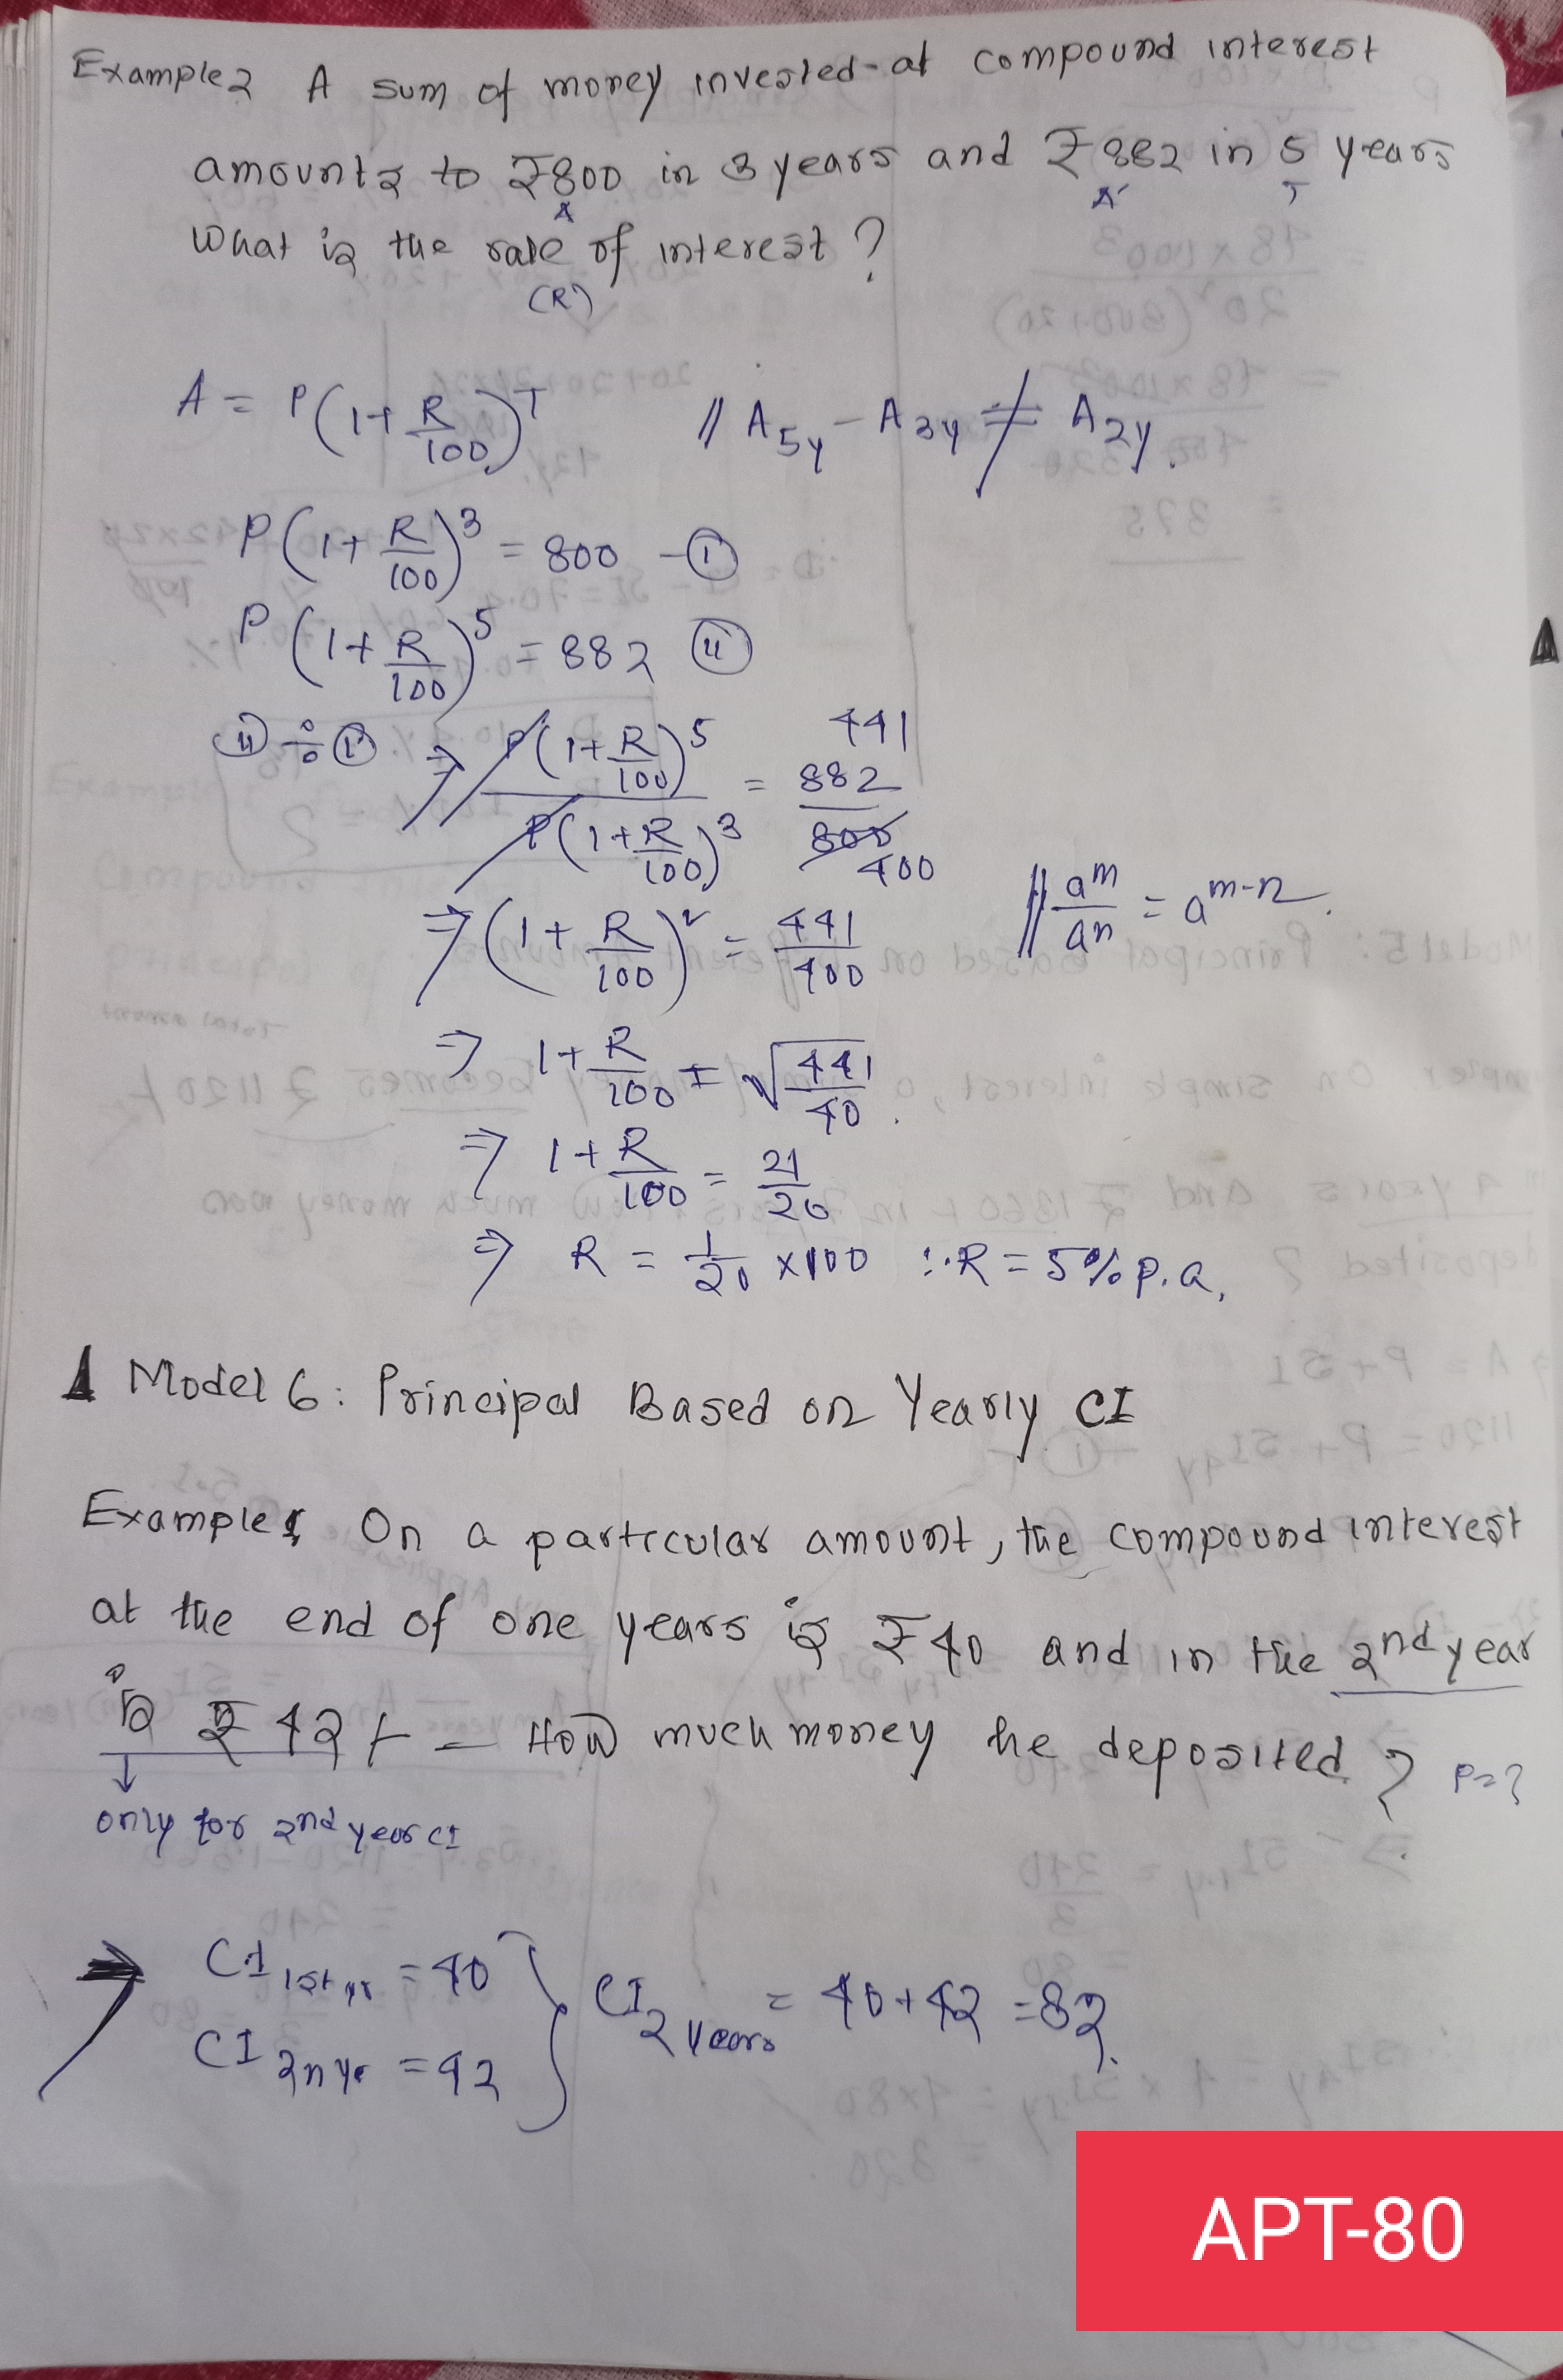 Example2 A sum of money invested at compound interest
amounts to ₹800 in 3 years and ₹882 in 5 years
A A' T
What is the rate of interest?
(R)
A = P(1+R/100)^T // A5y - A3y ≠ A2y.
P(1+R/100)^3 = 800 - (i)
P(1+R/100)^5 = 882 (ii)
(ii) ÷ (i) ⇒ P(1+R/100)^5 / P(1+R/100)^3 = 882/800 441/400
⇒ (1+R/100)^2 = 441/400 // a^m/a^n = a^m-n.
⇒ 1+R/100 = √441/40
⇒ 1+R/100 = 21/20
⇒ R = 1/20 ×100 ∴R = 5% p.a.
Model 6: Principal Based on Yearly CI
Example1 On a particular amount, the compound interest
at the end of one years is ₹40 and in the 2nd year
is ₹ 42/- — How much money he deposited? P=?
↓
only for 2nd year CI
⇒ CI 1st yr = 40 } CI 2 years = 40+42 = 82.
CI 2n yr = 42
APT-80